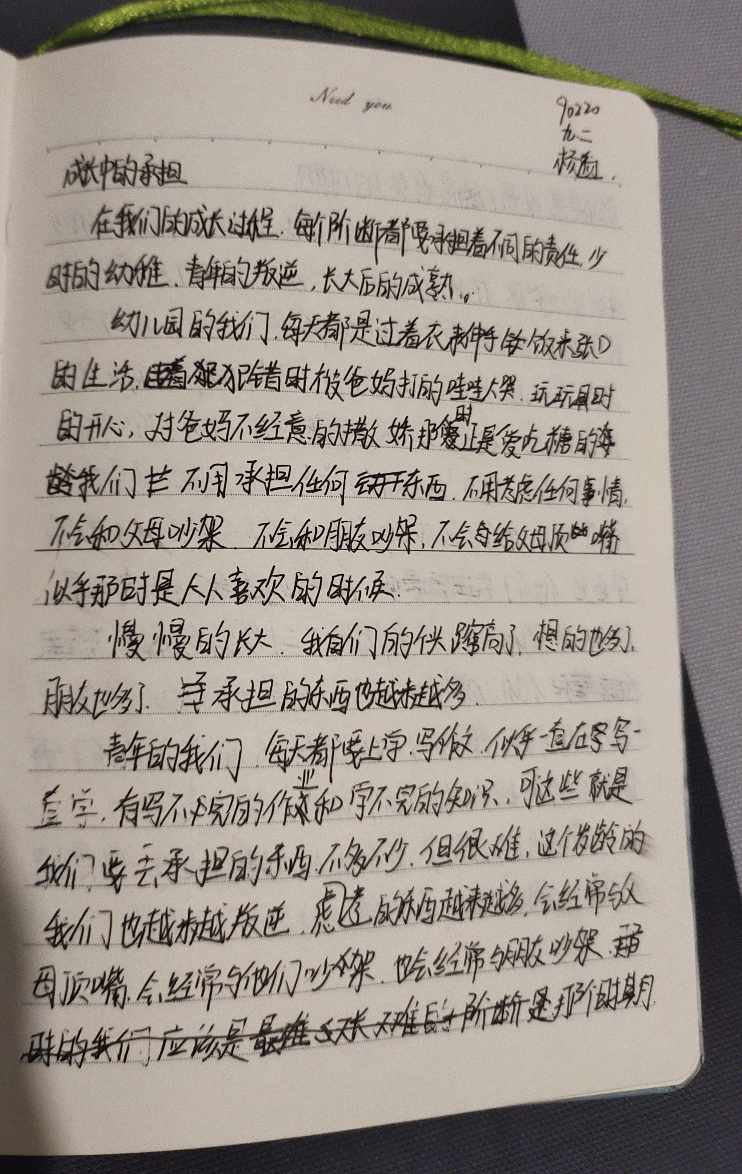 Need you
90220
九二
杨
成长中的承担
在我们的成长过程,每个阶断都要承担着不同的责任,少
时的幼稚,青年的叛逆,长大后的成熟。
幼儿园的我们,每天都是过着衣来伸手饭来张口
的生活,犯错时被爸妈打的哇哇大哭,玩玩具时
的开心,对爸妈不经意的撒娇那时正是爱吃糖的年
龄我们不用承担任何东西,不用考虑任何事情,
不会和父母吵架,不会和朋友吵架,不会给父母顶嘴
似乎那时是人人喜欢的时候.
慢慢的长大,我们的个头蹿高了,想的也多了,
朋友也多了,承担的东西也越来越多.
青年的我们,每天都要上学,写作文,似乎一直在写一
直学,有写不完的作业和学不完的知识,可这些就是
我们要去承担的东西,不多不少,但很难,这个龄的
我们也越来越叛逆,虑的东西越来越多,会经常与父
母顶嘴,会经常与他们吵架,也会经常与朋友吵架,
时的我们应该是最难阶断是那个时期